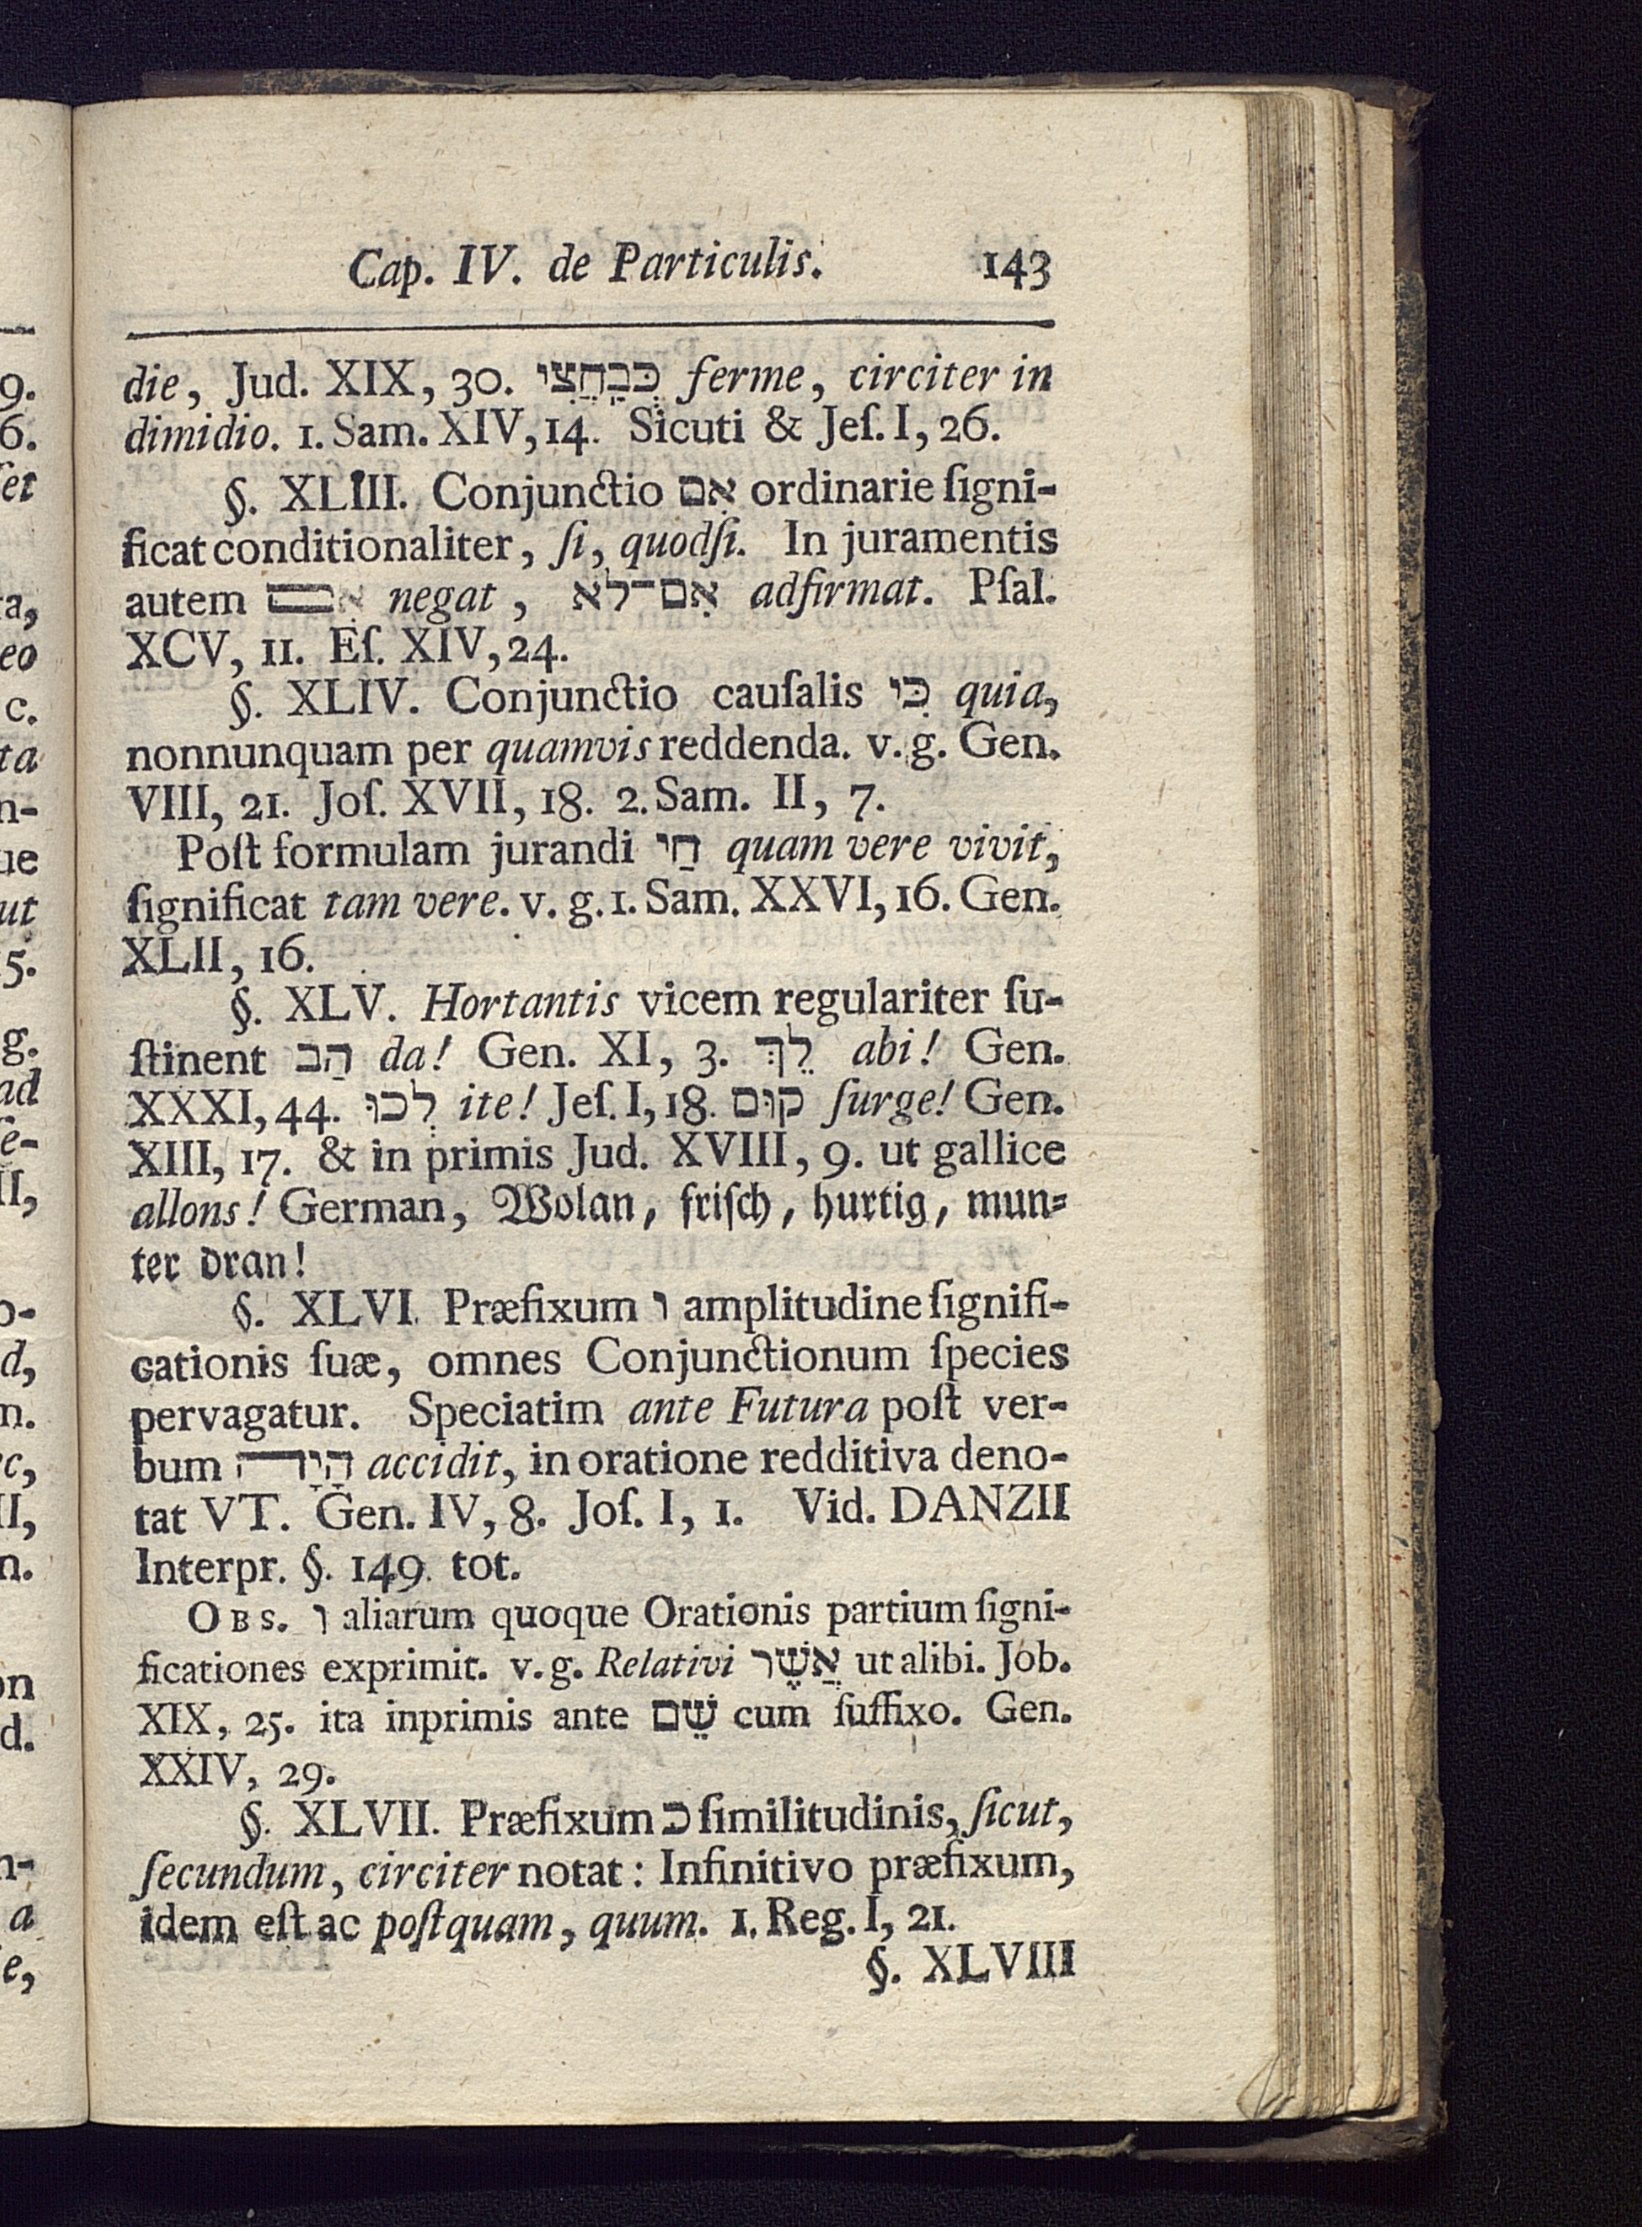 Cap. IV. de Particulis. 143
die, Jud. XIX, 30. כְּבַחֲצִי ferme, circiter in
dimidio. 1. Sam. XIV, 14. Sicuti & Jeſ. I, 26.
§. XLIII. Conjunctio אִם ordinarie ſigni-
ficat conditionaliter, ſi, quodſi. In juramentis
autem אִם negat, אִם־לֹא adfirmat. Pſal.
XCV, 11. Eſ. XIV, 24.
§. XLIV. Conjunctio cauſalis כִּי quia,
nonnunquam per quamvis reddenda. v. g. Gen.
VIII, 21. Joſ. XVII, 18. 2. Sam. II, 7.
Poſt formulam jurandi חַי quam vere vivit,
ſignificat tam vere. v. g. 1. Sam. XXVI, 16. Gen.
XLII, 16.
§. XLV. Hortantis vicem regulariter ſu-
ſtinent הַב da! Gen. XI, 3. לֵךְ abi! Gen.
XXXI, 44. לְכוּ ite! Jeſ. I, 18. קוּם ſurge! Gen.
XIII, 17. & in primis Jud. XVIII, 9. ut gallice
allons! German, Wolan, friſch, hurtig, mun-
ter dran!
§. XLVI. Præfixum ו amplitudine ſignifi-
cationis ſuæ, omnes Conjunctionum ſpecies
pervagatur. Speciatim ante Futura poſt ver-
bum הָיָה accidit, in oratione redditiva deno-
tat VT. Gen. IV, 8. Joſ. I, 1. Vid. DANZII
Interpr. §. 149. tot.
OBS. ו aliarum quoque Orationis partium ſigni-
ficationes exprimit. v. g. Relativi אֲשֶׁר ut alibi. Job.
XIX, 25. ita inprimis ante שֵׁם cum ſuffixo. Gen.
XXIV, 29.
§. XLVII. Præfixum כ ſimilitudinis, ſicut,
ſecundum, circiter notat: Infinitivo præfixum,
idem eſt ac poſtquam, quum. 1. Reg. I, 21.
§. XLVIII